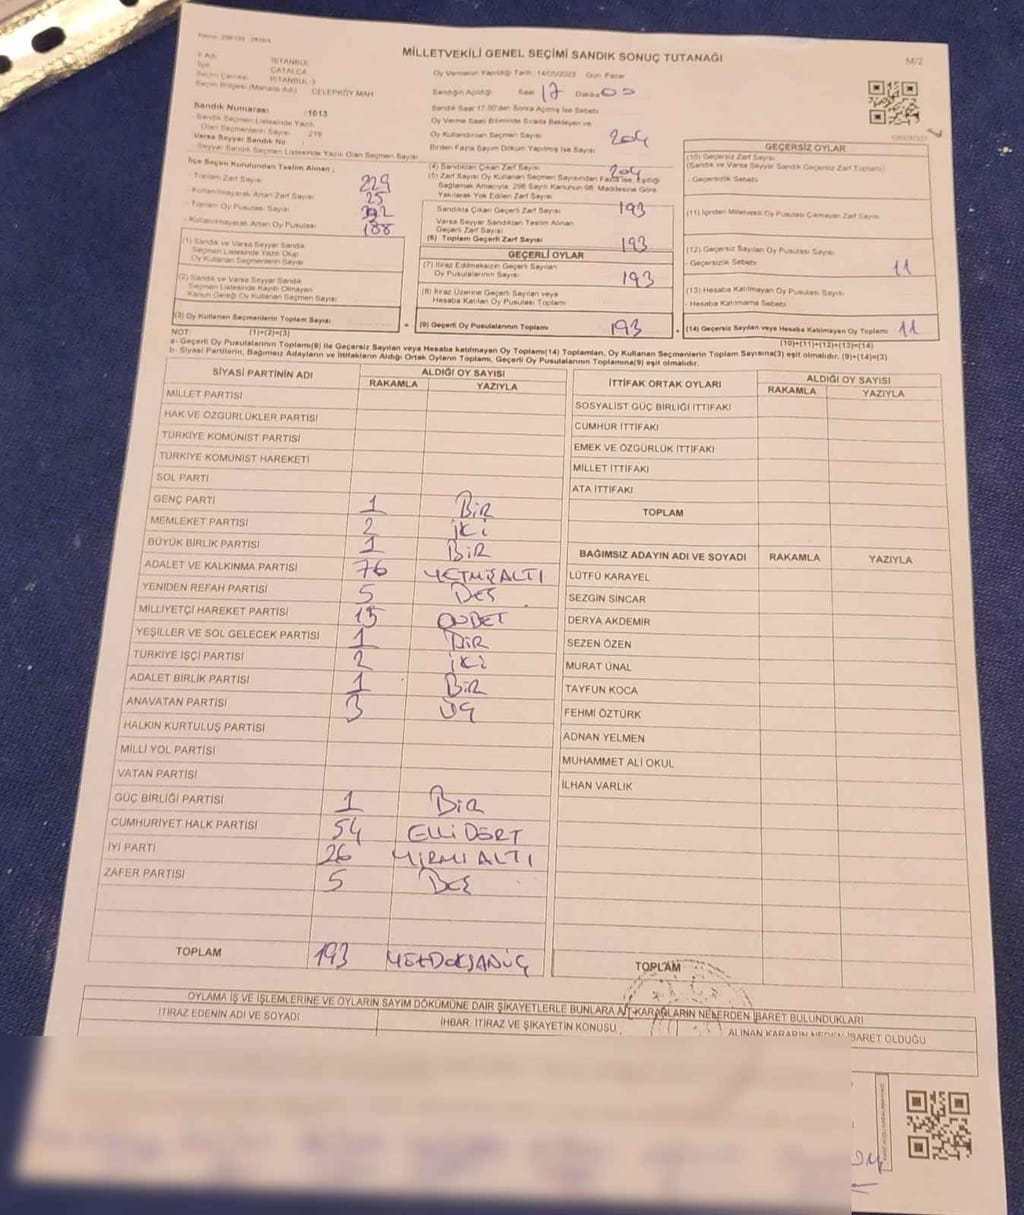 MİLLETVEKİLİ GENEL SEÇİMİ SANDIK SONUÇ TUTANAĞI
M/2
İSTANBUL
ÇATALCA
İSTANBUL-3
Seçim Bölgesi (Mahalle Adı) : CELEPKÖY MAH
Sandık Numarası : 1013
- Sandık Seçmen Listesinde Yazılı
Olan Seçmenlerin Sayısı : 219
Varsa Seyyar Sandık No
- Seyyar Sandık Seçmen Listesinde Yazılı Olan Seçmen Sayısı
İlçe Seçim Kurulundan Teslim Alınan ;
- Toplam Zarf Sayısı 229
- Kullanılmayarak Artan Zarf Sayısı 25
- Toplam Oy Pusulası Sayısı
- Kullanılmayarak Artan Oy Pusulası 188
(1) Sandık ve Varsa Seyyar Sandık
Seçmen Listesinde Yazılı Olup
Oy Kullanan Seçmenlerin Sayısı
(2) Sandık ve Varsa Seyyar Sandık
Seçmen Listesinde Kayıtlı Olmayan
Kanun Gereği Oy Kullanan Seçmen Sayısı
(3) Oy Kullanan Seçmenlerin Toplam Sayısı
NOT: (1)+(2)=(3)
Oy Vermenin Yapıldığı Tarih 14/05/2023 Gün Pazar
Sandığın Açıldığı Saat 17 Dakika 00
Sandık Saat 17:00'den Sonra Açılmış İse Sebebi
Oy Verme Saati Bitiminde Sırada Bekleyen ve
Oy Kullandırılan Seçmen Sayısı
Birden Fazla Sayım Döküm Yapılmış İse Sayısı
204
(4) Sandıktan Çıkan Zarf Sayısı 204
(5) Zarf Sayısı Oy Kullanan Seçmen Sayısından Fazla İse, Eşitliği
Sağlamak Amacıyla, 298 Sayılı Kanunun 98. Maddesine Göre
Yakılarak Yok Edilen Zarf Sayısı
Sandıkta Çıkan Geçerli Zarf Sayısı 193
Varsa Seyyar Sandıktan Teslim Alınan
Geçerli Zarf Sayısı
(6) Toplam Geçerli Zarf Sayısı 193
GEÇERLİ OYLAR
(7) İtiraz Edilmeksizin Geçerli Sayılan
Oy Pusulalarının Sayısı 193
(8) İtiraz Üzerine Geçerli Sayılan veya
Hesaba Katılan Oy Pusulası Toplamı
(9) Geçerli Oy Pusulalarının Toplamı 193
GEÇERSİZ OYLAR
(10) Geçersiz Zarf Sayısı
(Sandık ve Varsa Seyyar Sandık Geçersiz Zarf Toplamı)
- Geçersizlik Sebebi
(11) İçinden Milletvekili Oy Pusulası Çıkmayan Zarf Sayısı
(12) Geçersiz Sayılan Oy Pusulası Sayısı
- Geçersizlik Sebebi 11
(13) Hesaba Katılmayan Oy Pusulası Sayısı
- Hesaba Katılmama Sebebi
(14) Geçersiz Sayılan veya Hesaba Katılmayan Oy Toplamı 11
(10)+(11)+(12)+(13)=(14)
a- Geçerli Oy Pusulalarının Toplamı(9) ile Geçersiz Sayılan veya Hesaba katılmayan Oy Toplamı(14) Toplamları, Oy Kullanan Seçmenlerin Toplam Sayısına(3) eşit olmalıdır. (9)+(14)=(3)
b- Siyasi Partilerin, Bağımsız Adayların ve İttifakların Aldığı Ortak Oyların Toplamı, Geçerli Oy Pusulalarının Toplamına(9) eşit olmalıdır.
SİYASİ PARTİNİN ADI ALDIĞI OY SAYISI
RAKAMLA YAZIYLA
MİLLET PARTİSİ
HAK VE ÖZGÜRLÜKLER PARTİSİ
TÜRKİYE KOMÜNİST PARTİSİ
TÜRKİYE KOMÜNİST HAREKETİ
SOL PARTİ
GENÇ PARTİ 1 BİR
MEMLEKET PARTİSİ 2 İKİ
BÜYÜK BİRLİK PARTİSİ 1 BİR
ADALET VE KALKINMA PARTİSİ 76 YETMİŞALTI
YENİDEN REFAH PARTİSİ 5 BEŞ
MİLLİYETÇİ HAREKET PARTİSİ 15
YEŞİLLER VE SOL GELECEK PARTİSİ 1 BİR
TÜRKİYE İŞÇİ PARTİSİ 2 İKİ
ADALET BİRLİK PARTİSİ 1 BİR
ANAVATAN PARTİSİ 3 ÜÇ
HALKIN KURTULUŞ PARTİSİ
MİLLİ YOL PARTİSİ
VATAN PARTİSİ
GÜÇ BİRLİĞİ PARTİSİ 1 BİR
CUMHURİYET HALK PARTİSİ 54 ELLİ DÖRT
İYİ PARTİ 26 YİRMİ ALTI
ZAFER PARTİSİ 5 BEŞ
TOPLAM 193
İTTİFAK ORTAK OYLARI ALDIĞI OY SAYISI
RAKAMLA YAZIYLA
SOSYALİST GÜÇ BİRLİĞİ İTTİFAKI
CUMHUR İTTİFAKI
EMEK VE ÖZGÜRLÜK İTTİFAKI
MİLLET İTTİFAKI
ATA İTTİFAKI
TOPLAM
BAĞIMSIZ ADAYIN ADI VE SOYADI RAKAMLA YAZIYLA
LÜTFÜ KARAYEL
SEZGİN SİNCAR
DERYA AKDEMİR
SEZEN ÖZEN
MURAT ÜNAL
TAYFUN KOCA
FEHMİ ÖZTÜRK
ADNAN YELMEN
MUHAMMET ALİ OKUL
İLHAN VARLIK
TOPLAM
OYLAMA İŞ VE İŞLEMLERİNE VE OYLARIN SAYIM DÖKÜMÜNE DAİR ŞİKAYETLERLE BUNLARA AİT KARARLARIN NELERDEN İBARET BULUNDUKLARI
İTİRAZ EDENİN ADI VE SOYADI İHBAR, İTİRAZ VE ŞİKAYETİN KONUSU ALINAN KARARIN NEDEN İBARET OLDUĞU